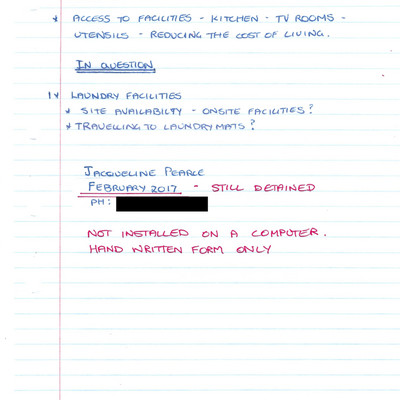 * ACCESS TO FACILITIES - KITCHEN - TV ROOMS -
UTENSILS - REDUCING THE COST OF LIVING.
IN QUESTION
1* LAUNDRY FACILITIES
* SITE AVAILABILTY - ONSITE FACILITIES?
* TRAVELLING TO LAUNDRYMATS?
JACQUELINE PEARCE
FEBRUARY 2017. - STILL DETAINED
PH:
NOT INSTALLED ON A COMPUTER.
HAND WRITTEN FORM ONLY